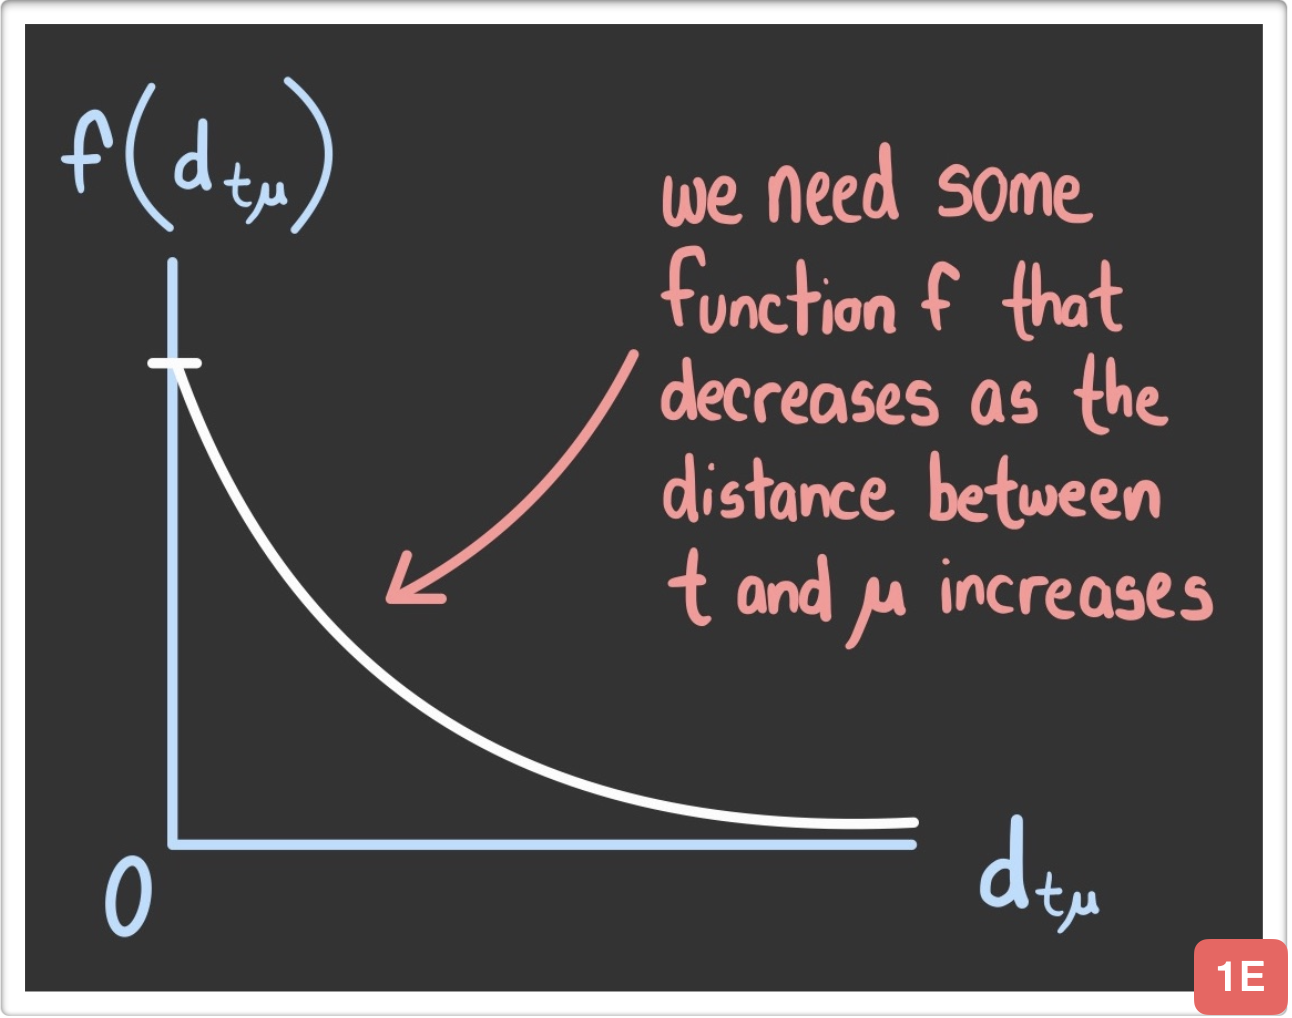 f(d_tμ)
we need some
function f that
decreases as the
distance between
t and μ increases
0
d_tμ
1E